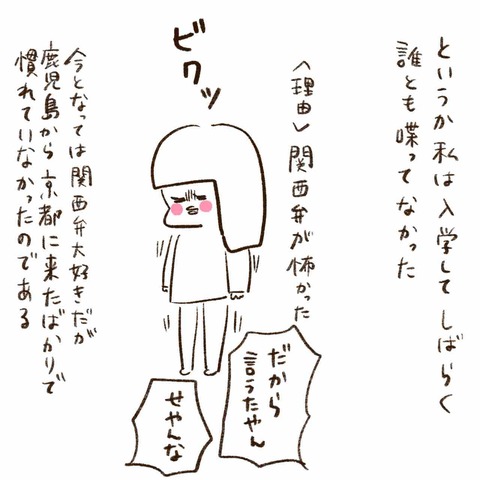 というか私は入学してしばらく
誰とも喋ってなかった
〈理由〉関西弁が怖かった
ビクッ
だから
言うたやん
せやんな
今となっては関西弁大好きだが
鹿児島から京都に来たばかりで
慣れていなかったのである